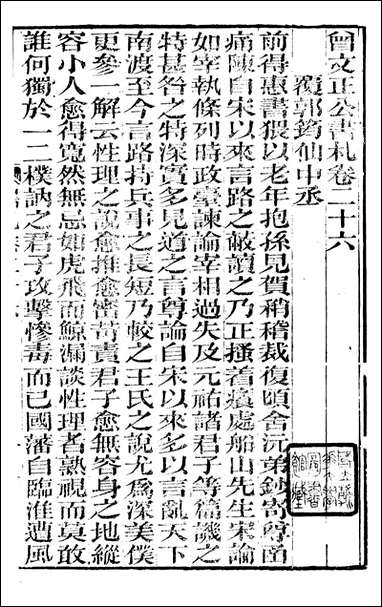 曾文正公書札卷二十六
覆郭筠仙中丞
前得惠書猥以老年抱孫見賀稍稽裁復頃舍沅弟鈔寄尊函
痛陳自宋以來言路之蔽讀之乃正搔着癢處船山先生宋論
如宰執條列時政臺諫論宰相過失及元祐諸君子等篇譏之
特甚咎之特深實多見道之言尊論自宋以來多以言亂天下
南渡至今言路持兵事之長短乃較之王氏之說尤爲深美僕
更參一解云性理之說愈推愈密苛責君子愈無容身之地縱
容小人愈得寬然無忌如虎飛而鯨漏談性理者熟視而莫敢
誰何獨於一二樸訥之君子攻擊慘毒而已國藩自臨淮遭風